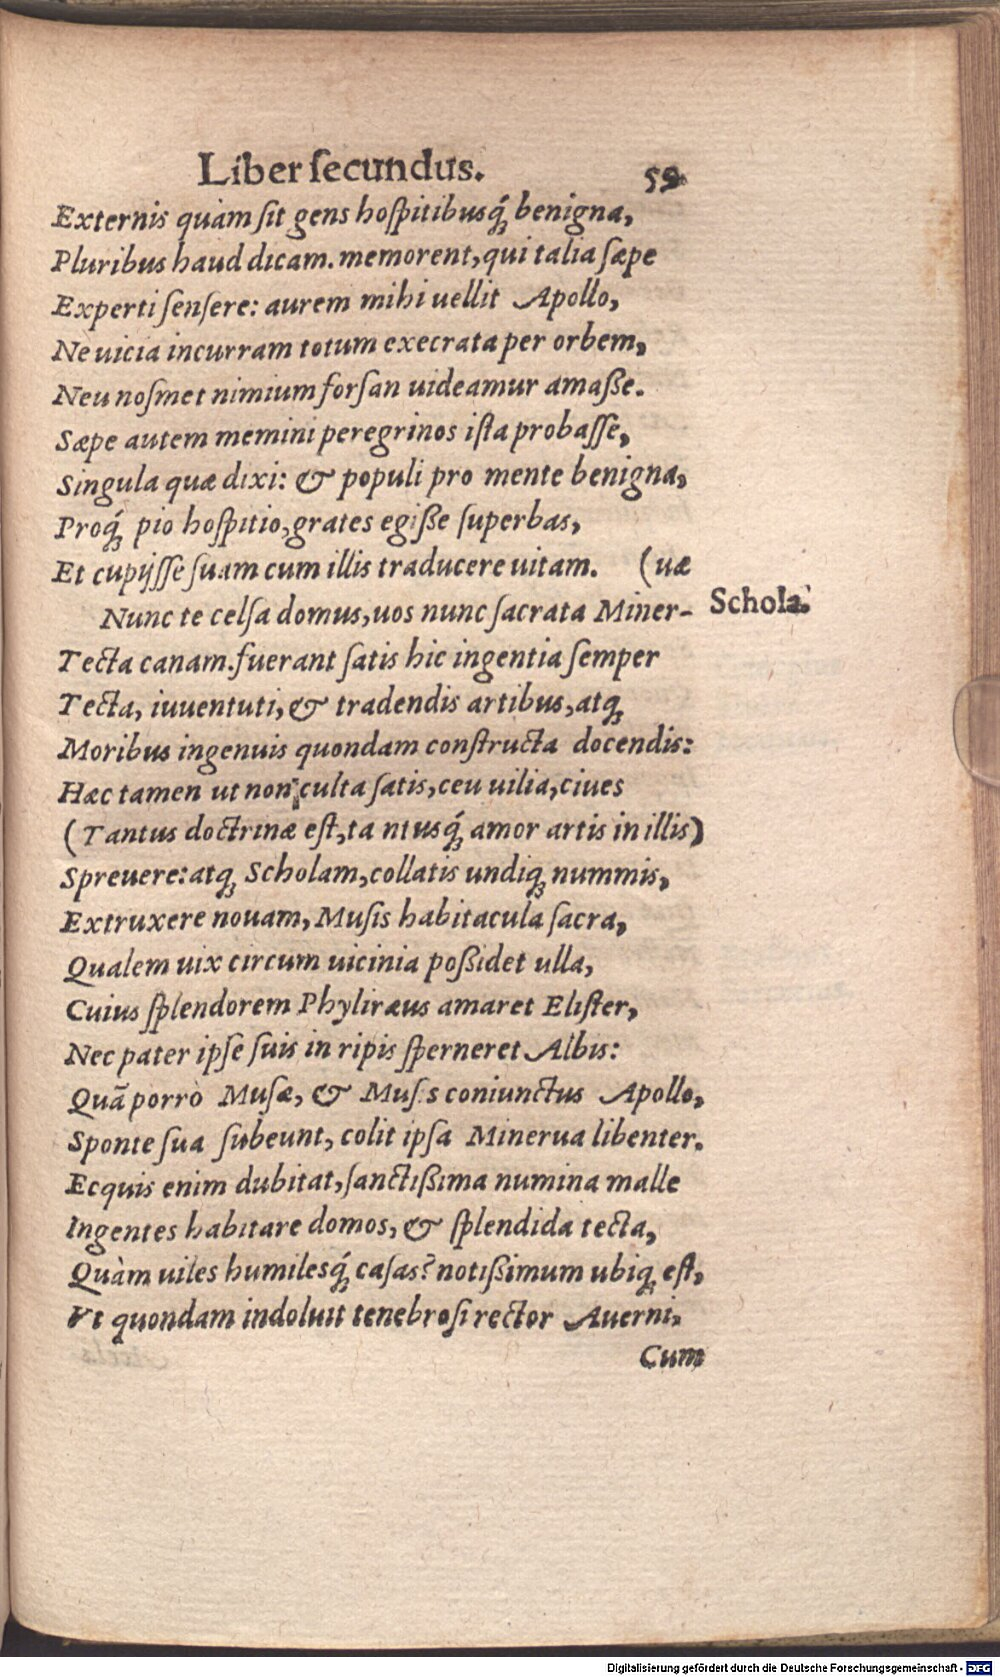 Liber ſecundus. 59
Externis quàm ſit gens hoſpitibusq́; benigna,
Pluribus haud dicam. memorent, qui talia ſæpe
Experti ſenſere: aurem mihi uellit Apollo,
Ne uicia incurram totum execrata per orbem,
Neu noſmet nimium forſan uideamur amaße.
Sæpe autem memini peregrinos iſta probaſſe,
Singula quæ dixi: & populi pro mente benigna,
Proq́; pio hoſpitio, grates egiße ſuperbas,
Et cupijſſe ſuam cum illis traducere uitam. (uæ
Nunc te celſa domus, uos nunc ſacrata Miner-
Schola.
Tecta canam. fuerant ſatis hic ingentia ſemper
Tecta, iuuentuti, & tradendis artibus, atq;
Moribus ingenuis quondam conſtructa docendis:
Hæc tamen ut non culta ſatis, ceu uilia, ciues
(Tantus doctrinæ eſt, ta ntusq́; amor artis in illis)
Spreuere: atq; Scholam, collatis undiq; nummis,
Extruxere nouam, Muſis habitacula ſacra,
Qualem uix circum uicinia poßidet ulla,
Cuius ſplendorem Phyliræus amaret Eliſter,
Nec pater ipſe ſuis in ripis ſperneret Albis:
Quã porrò Muſæ, & Muſis coniunctus Apollo,
Sponte ſua ſubeunt, colit ipſa Minerua libenter.
Ecquis enim dubitat, ſanctißima numina malle
Ingentes habitare domos, & ſplendida tecta,
Quàm uiles humilesq́; caſas? notißimum ubiq; eſt,
Vt quondam indoluit tenebroſi rector Auerni.
Cum
Digitalisierung gefördert durch die Deutsche Forschungsgemeinschaft - DFG